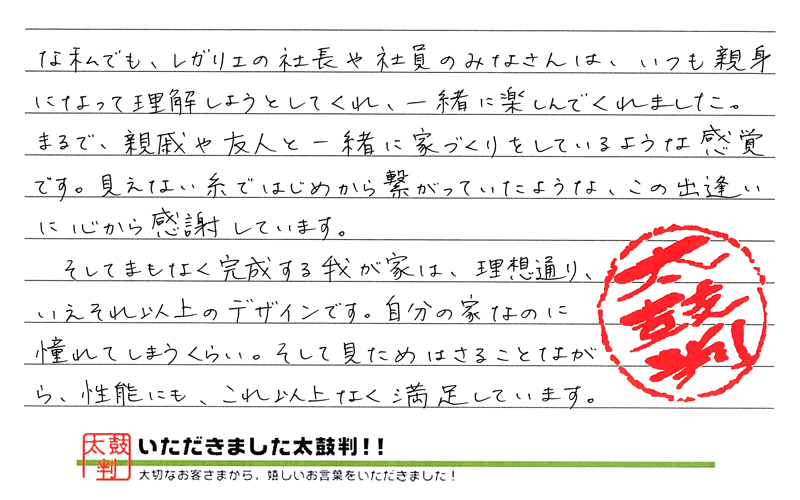 な私でも、レガリエの社長や社員のみなさんは、いつも親身
になって理解しようとしてくれ、一緒に楽しんでくれました。
まるで、親戚や友人と一緒に家づくりをしているような感覚
です。見えない糸ではじめから繋がっていたような、この出逢い
に心から感謝しています。
そしてまもなく完成する我が家は、理想通り、
いえそれ以上のデザインです。自分の家なのに
憧れてしまうくらい。そして見ためはさることなが
ら、性能にも、これ以上なく満足しています。
太鼓判
太鼓判
いただきました太鼓判!!
大切なお客さまから、嬉しいお言葉をいただきました!